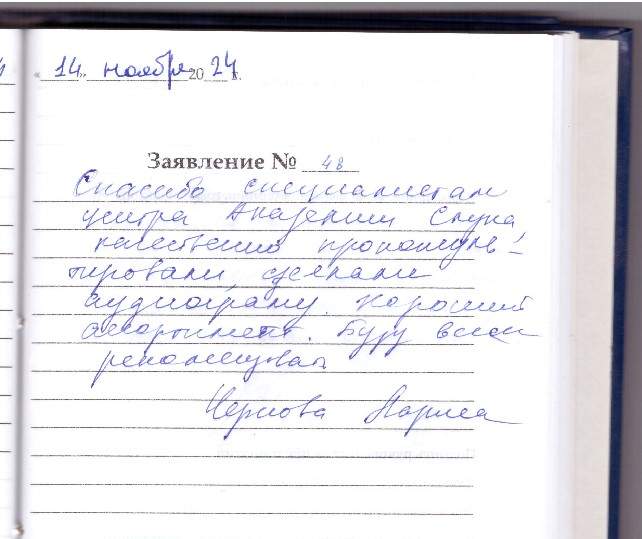 14 ноября 2024 г.
Заявление № 48
Спасибо специалистам
центра Академии Слуха
качественно проконсуль-
тировали, сделали
аудиограму. Хороший
ассортимент. Буду всем
рекомендовать
Чернова Лариса